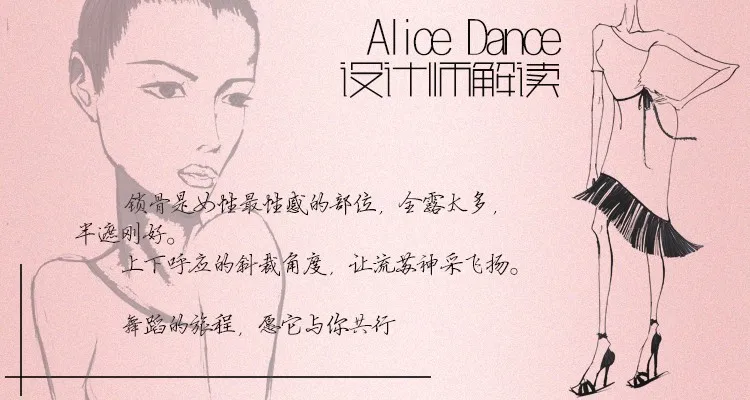 Alice Dance
设计师解读
锁骨是女性最性感的部位，全露太多，
半遮刚好。
上下呼应的斜裁角度，让流苏神采飞扬。
舞蹈的旅程，愿它与你共行